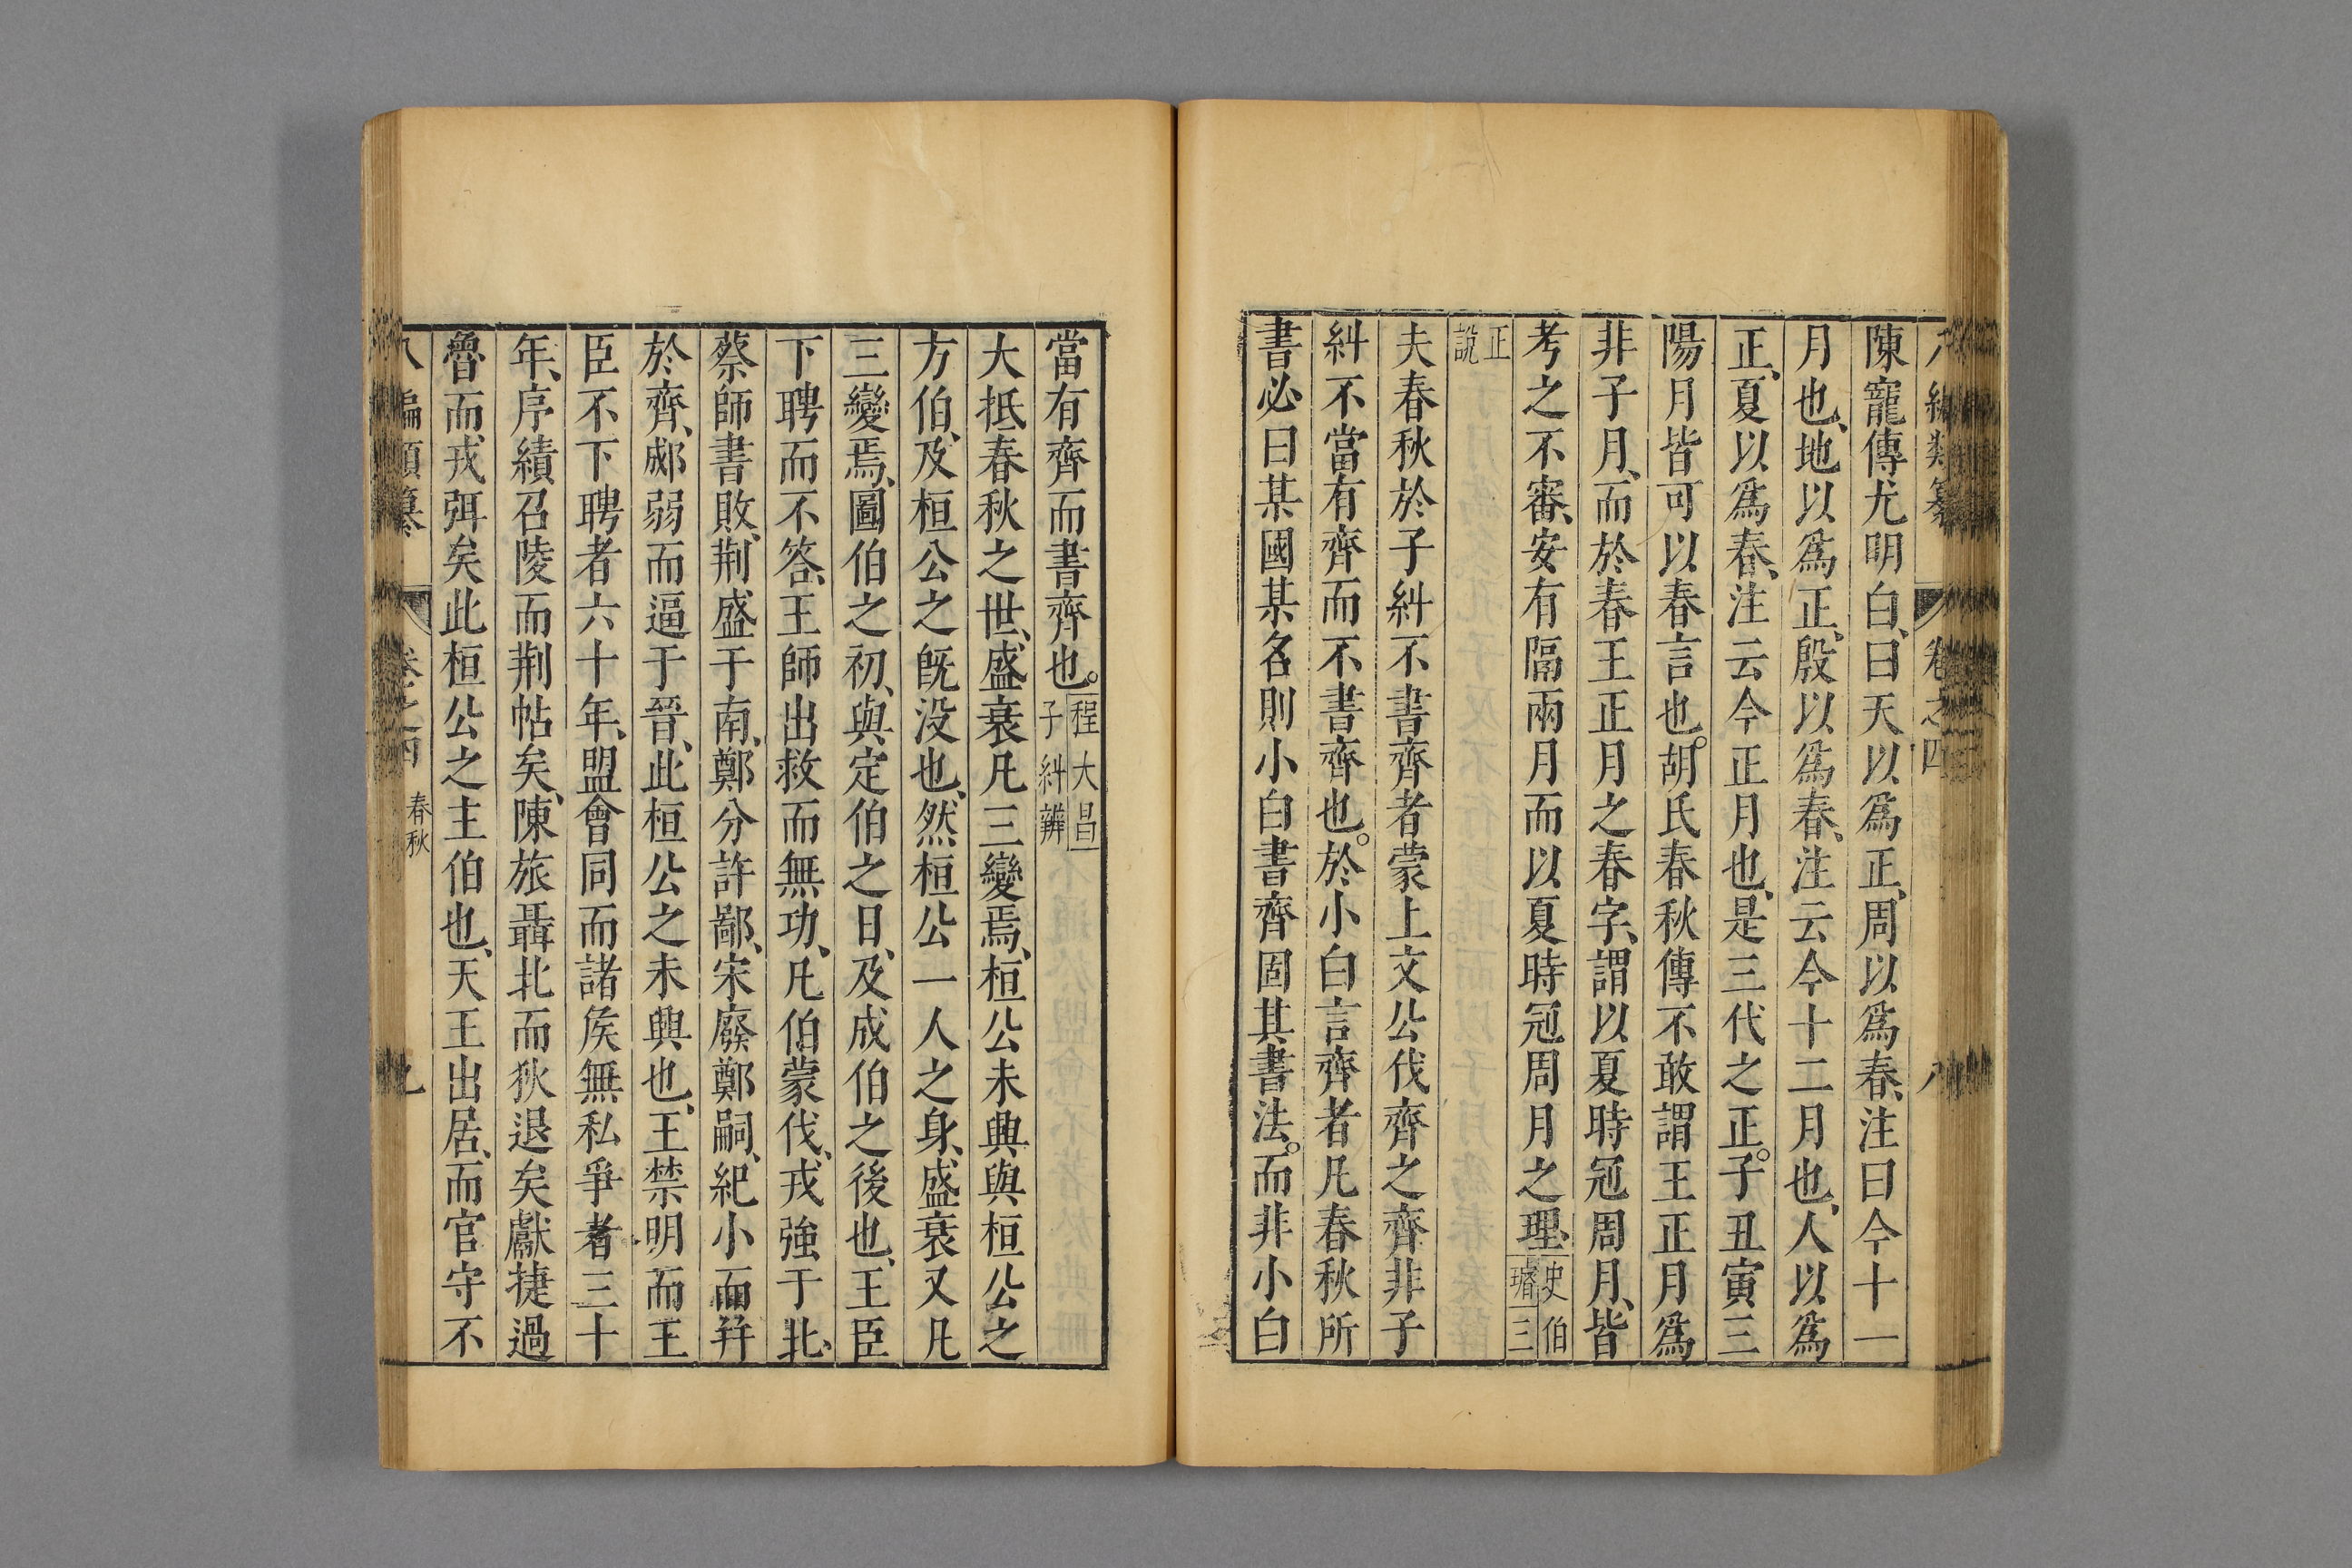 八編類纂 卷之四 八
陳寵傳尤明白、曰天以爲正、周以爲春、注曰今十一
月也、地以爲正、殷以爲春、注云今十二月也、人以爲
正、夏以爲春、注云今正月也、是三代之正。子丑寅三
陽月皆可以春言也。胡氏春秋傳不敢謂王正月爲
非子月、而於春王正月之春字、謂以夏時冠周月、皆
考之不審、安有隔兩月而以夏時冠周月之理、史伯
璿三
正
說
夫春秋於子糾不書齊者蒙上文公伐齊之齊非子
糾不當有齊而不書齊也。於小白言齊者凡春秋所
書必曰某國某名則小白書齊固其書法。而非小白
當有齊而書齊也。程大昌
子糾辨
大抵春秋之世、盛衰凡三變焉、桓公未興與桓公之
方伯、及桓公之旣没也、然桓公一人之身、盛衰又凡
三變焉、圖伯之初、與定伯之日、及成伯之後也、王臣
下聘而不答、王師出救而無功、凡伯蒙伐、戎強于北、
蔡師書敗、荆盛于南、鄭分許鄙、宋廢鄭嗣、紀小而并
於齊、郕弱而逼于晉、此桓公之未興也、王禁明而王
臣不下聘者六十年、盟會同而諸侯無私爭者三十
年、序績召陵而荆帖矣、陳旅聶北而狄退矣獻捷過
魯而戎弭矣此桓公之主伯也、天王出居、而官守不
八編類纂 卷之四 春秋 九